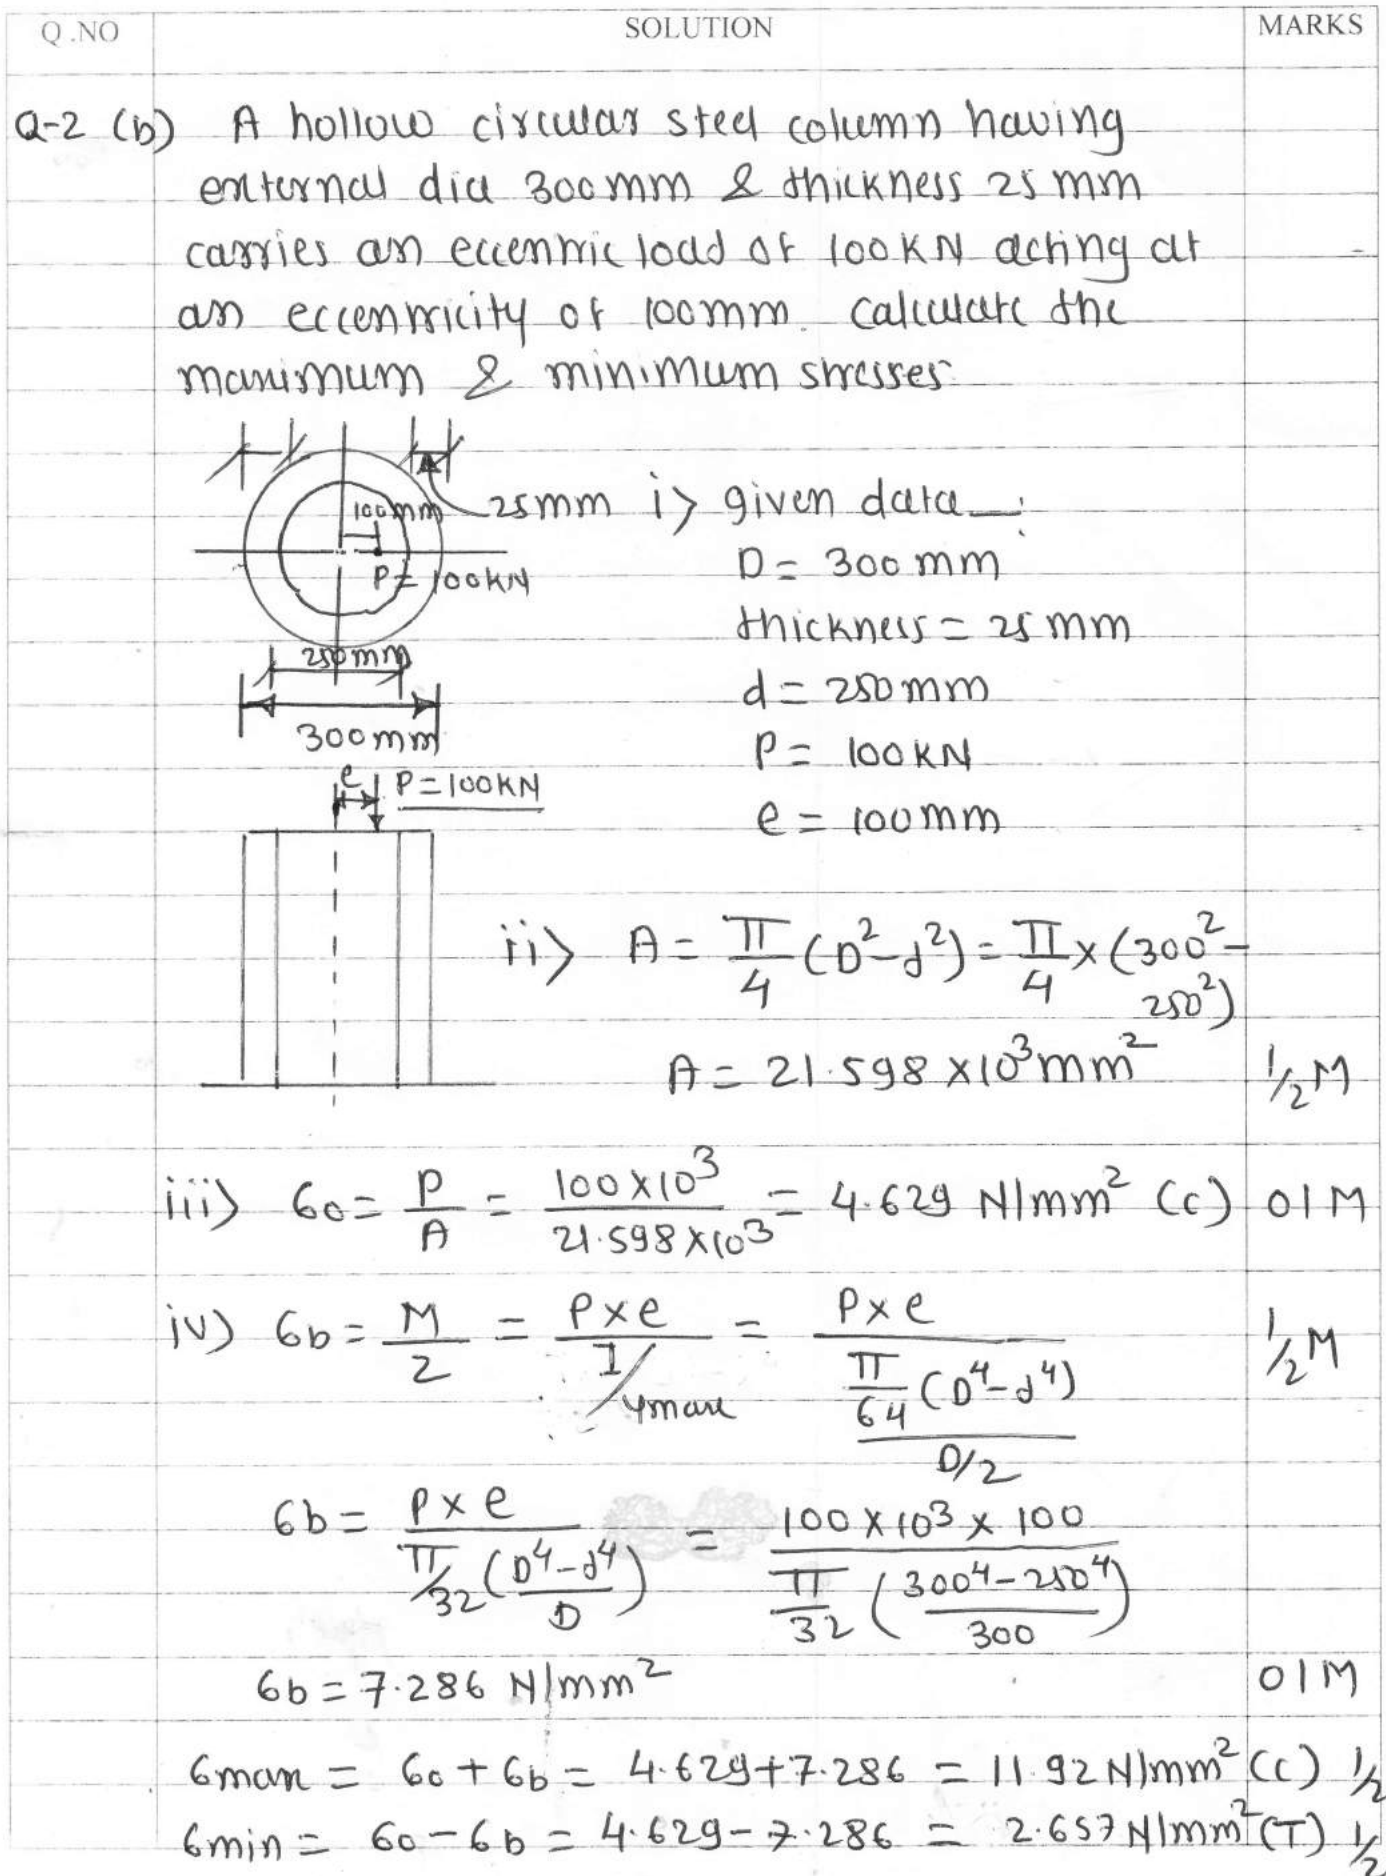 Q.NO SOLUTION MARKS
Q-2 (b) A hollow circular steel column having
external dia 300mm & thickness 25 mm
carries an eccentric load of 100KN acting at
an eccentricity of 100mm. calculate the
maximum & minimum stresses
25mm i> given data :
100mm
D = 300 mm
P = 100KN
thickness = 25 mm
250mm
d = 250mm
300mm
P = 100KN
e P=100KN
e = 100mm
ii> A = π/4 (D²-d²) = π/4 × (300² -
250²)
A = 21.598 ×10³mm² 1/2 M
iii> 6o = P/A = 100×10³/21.598×10³ = 4.629 N/mm² (c) 01M
iv) 6b = M/Z = P×e/(I/ymax) = P×e/((π/64 (D⁴-d⁴))/(D/2)) 1/2 M
6b = P×e/(π/32 ((D⁴-d⁴)/D)) = 100×10³×100/(π/32 ((300⁴-250⁴)/300))
6b = 7.286 N/mm² 01M
6max = 6o + 6b = 4.629+7.286 = 11.92 N/mm² (c) 1/2
6min = 6o - 6b = 4.629-7.286 = 2.657 N/mm² (T) 1/2